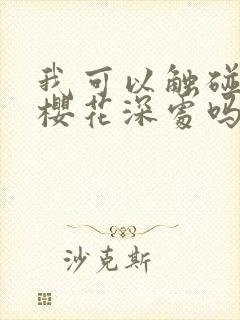 我可以触碰
樱花深处吗
沙克斯